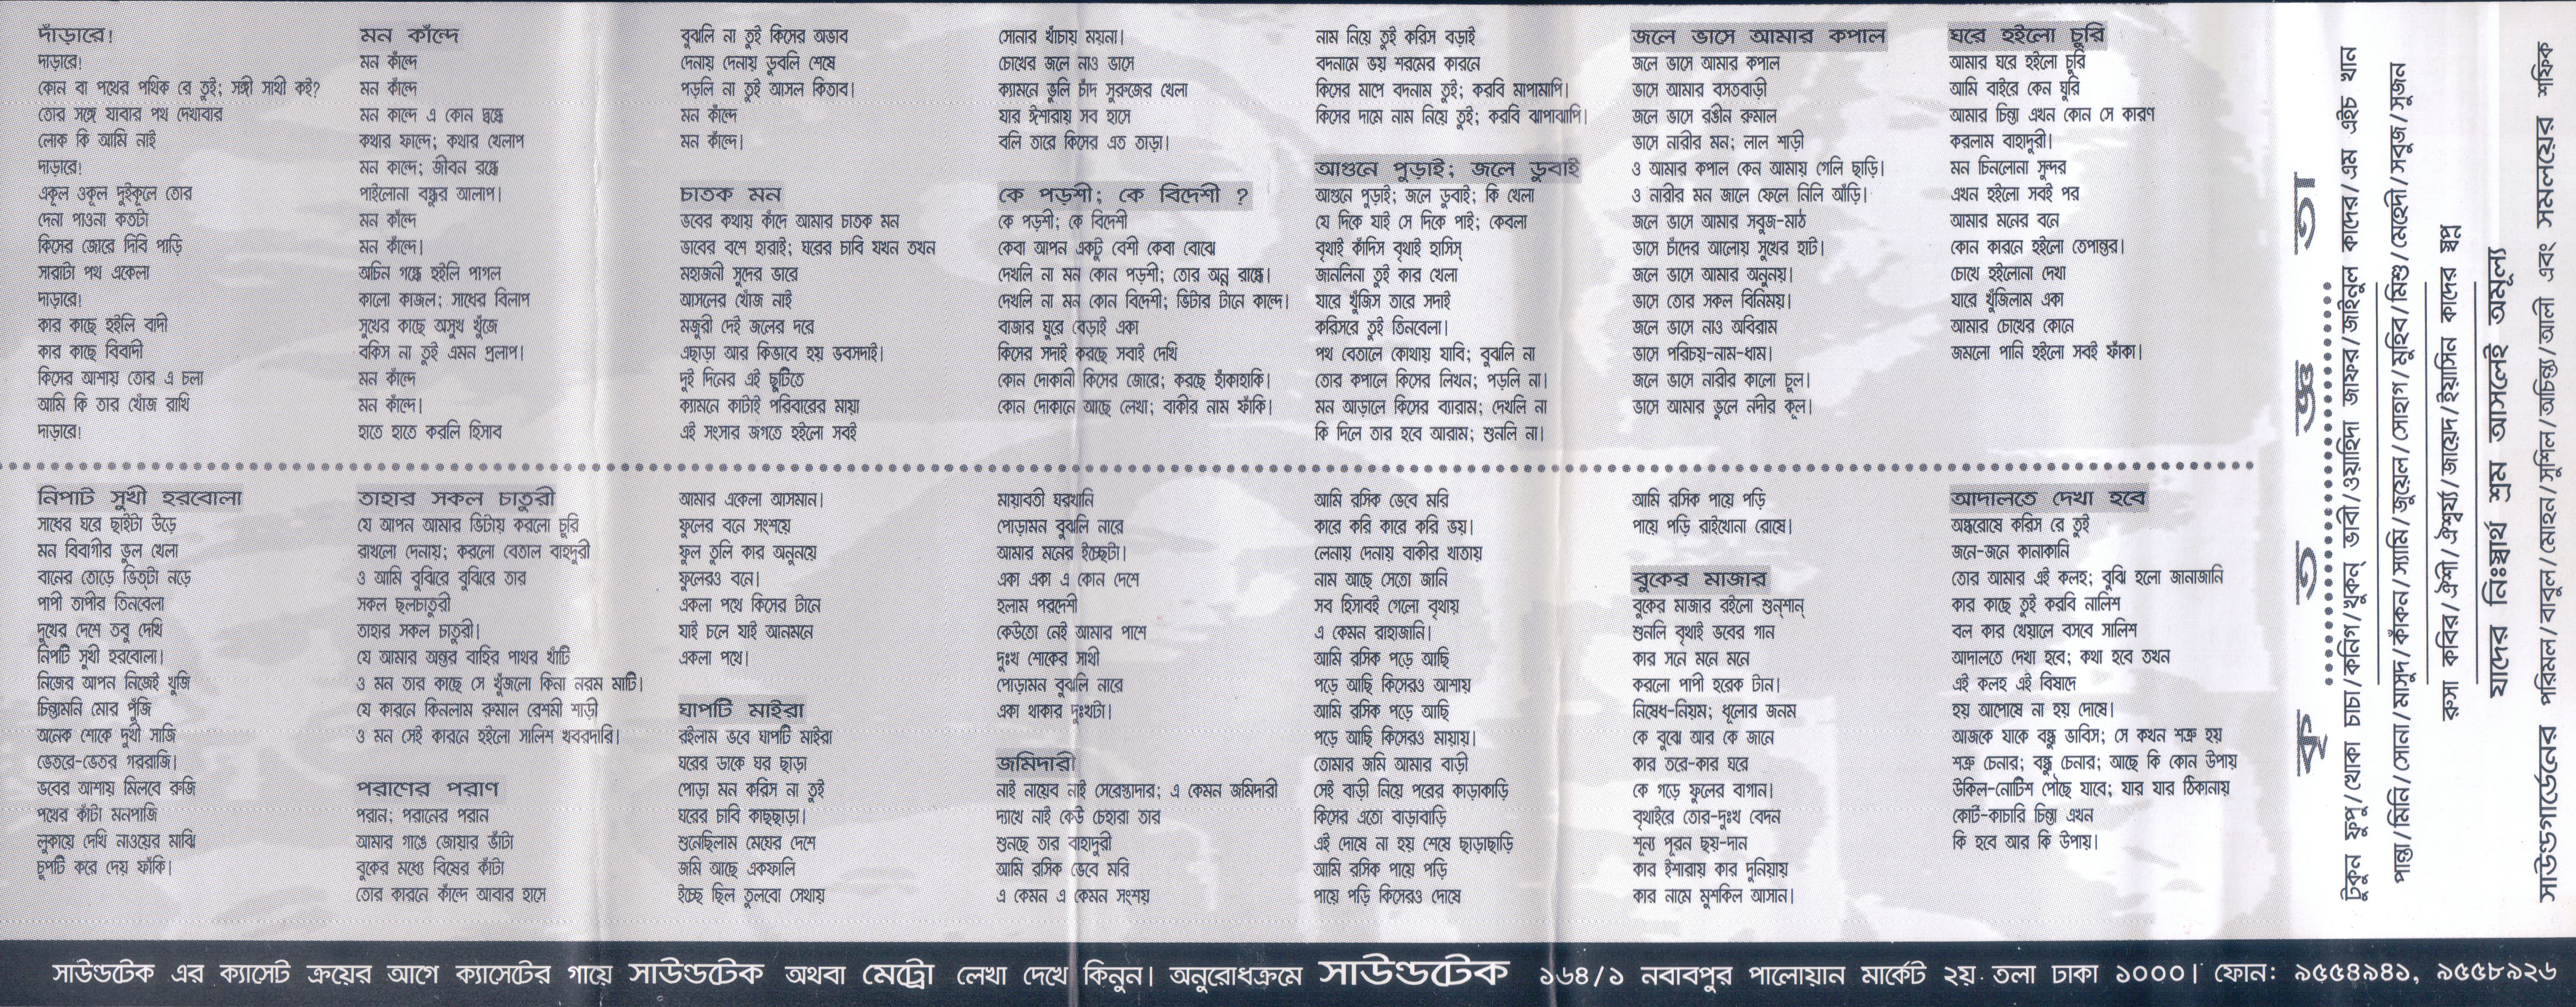 দাঁড়ারে!
দাড়ারে!
কোন বা পথের পথিক রে তুই; সঙ্গী সাথী কই?
তোর সঙ্গে যাবার পথ দেখাবার
লোক কি আমি নাই
দাড়ারে!
একূল ওকূল দুইকূলে তোর
দেনা পাওনা কতটা
কিসের জোরে দিবি পাড়ি
সারাটা পথ একেলা
দাড়ারে!
কার কাছে হইলি বাদী
কার কাছে বিবাদী
কিসের আশায় তোর এ চলা
আমি কি তার খোঁজ রাখি
দাড়ারে!
মন কাঁন্দে
মন কাঁন্দে
মন কাঁন্দে
মন কান্দে এ কোন দ্বন্ধে
কথার ফান্দে; কথার খেলাপ
মন কান্দে; জীবন রন্ধ্রে
পাইলোনা বন্ধুর আলাপ।
মন কাঁন্দে
মন কাঁন্দে।
অচিন গন্ধে হইলি পাগল
কালো কাজল; সাধের বিলাপ
সুখের কাছে অসুখ খুঁজে
বকিস না তুই এমন প্রলাপ।
মন কাঁন্দে
মন কাঁন্দে।
হাতে হাতে করলি হিসাব
বুঝলি না তুই কিসের অভাব
দেনায় দেনায় ডুবলি শেষে
পড়লি না তুই আসল কিতাব।
মন কাঁন্দে
মন কাঁন্দে।
চাতক মন
ভবের কথায় কাঁদে আমার চাতক মন
ভাবের বশে হারাই; ঘরের চাবি যখন তখন
মহাজনী সুদের ভারে
আসলের খোঁজ নাই
মজুরী দেই জলের দরে
এছাড়া আর কিভাবে হয় ভবসদাই।
দুই দিনের এই ছুটিতে
ক্যামনে কাটাই পরিবারের মায়া
এই সংসার জগতে হইলো সবই
সোনার খাঁচায় ময়না।
চোখের জলে নাও ভাসে
ক্যামনে ভুলি চাঁদ সুরুজের খেলা
যার ঈশারায় সব হাসে
বলি তারে কিসের এত তাড়া।
কে পড়শী; কে বিদেশী ?
কে পড়শী; কে বিদেশী
কেবা আপন একটু বেশী কেবা বোঝে
দেখলি না মন কোন পড়শী; তোর অন্ন রান্ধে।
দেখলি না মন কোন বিদেশী; ভিটার টানে কান্দে।
বাজার ঘুরে বেড়াই একা
কিসের সদাই করছে সবাই দেখি
কোন দোকানী কিসের জোরে; করছে হাঁকাহাকি।
কোন দোকানে আছে লেখা; বাকীর নাম ফাঁকি।
নাম নিয়ে তুই করিস বড়াই
বদনামে ভয় শরমের কারনে
কিসের মাপে বদনাম তুই; করবি মাপামাপি।
কিসের দামে নাম নিয়ে তুই; করবি ঝাপাঝাপি।
আগুনে পুড়াই; জলে ডুবাই
আগুনে পুড়াই; জলে ডুবাই; কি খেলা
যে দিকে যাই সে দিকে পাই; কেবলা
বৃথাই কাঁদিস বৃথাই হাসিস্
জানলিনা তুই কার খেলা
যারে খুঁজিস তারে সদাই
করিসরে তুই তিনবেলা।
পথ বেতালে কোথায় যাবি; বুঝলি না
তোর কপালে কিসের লিখন; পড়লি না।
মন আড়ালে কিসের ব্যারাম; দেখলি না
কি দিলে তার হবে আরাম; শুনলি না।
জলে ভাসে আমার কপাল
জলে ভাসে আমার কপাল
ভাসে আমার বসতবাড়ী
জলে ভাসে রঙীন রুমাল
ভাসে নারীর মন; লাল শাড়ী
ও আমার কপাল কেন আমায় গেলি ছাড়ি।
ও নারীর মন জালে ফেলে নিলি আঁড়ি।
জলে ভাসে আমার সবুজ-মাঠ
ভাসে চাঁদের আলোয় সুখের হাট।
জলে ভাসে আমার অনুনয়।
ভাসে তোর সকল বিনিময়।
জলে ভাসে নাও অবিরাম
ভাসে পরিচয়-নাম-ধাম।
জলে ভাসে নারীর কালো চুল।
ভাসে আমার ভুলে নদীর কূল।
ঘরে হইলো চুরি
আমার ঘরে হইলো চুরি
আমি বাইরে কেন ঘুরি
আমার চিন্তা এখন কোন সে কারণ
করলাম বাহাদুরী।
মন চিনলোনা সুন্দর
এখন হইলো সবই পর
আমার মনের বনে
কোন কারনে হইলো তেপান্তর।
চোখে হইলোনা দেখা
যারে খুঁজিলাম একা
আমার চোখের কোনে
জমলো পানি হইলো সবই ফাঁকা।
নিপাট সুখী হরবোলা
সাধের ঘরে ছাইটা উড়ে
মন বিবাগীর ভুল খেলা
বানের তোড়ে ভিত্‌টা নড়ে
পাপী তাপীর তিনবেলা
দুখের দেশে তবু দেখি
নিপটি সুখী হরবোলা।
নিজের আপন নিজেই খুজি
চিন্তামনি মোর পুঁজি
অনেক শোকে দুখী সাজি
ভেতরে-ভেতর গররাজি।
ভবের আশায় মিলবে রুজি
পথের কাঁটা মনপাজি
লুকায়ে দেখি নাওয়ের মাঝি
চুপটি করে দেয় ফাঁকি।
তাহার সকল চাতুরী
যে আপন আমার ভিটায় করলো চুরি
রাখলো দেনায়; করলো বেতাল বাহুদুরী
ও আমি বুঝিরে বুঝিরে তার
সকল ছলচাতুরী
তাহার সকল চাতুরী।
যে আমার অন্তর বাহির পাথর খাঁটি
ও মন তার কাছে সে খুঁজলো কিনা নরম মাটি।
যে কারনে কিনলাম রুমাল রেশমী শাড়ী
ও মন সেই কারনে হইলো সালিশ খবরদারি।
পরাণের পরাণ
পরান; পরানের পরান
আমার গাঙে জোয়ার ভাঁটা
বুকের মধ্যে বিষের কাঁটা
তোর কারনে কাঁন্দে আবার হাসে
আমার একেলা আসমান।
ফুলের বনে সংশয়ে
ফুল তুলি কার অনুনয়ে
ফুলেরও বনে।
একলা পথে কিসের টানে
যাই চলে যাই আনমনে
একলা পথে।
ঘাপটি মাইরা
রইলাম ভবে ঘাপটি মাইরা
ঘরের ডাকে ঘর ছাড়া
পোড়া মন করিস না তুই
ঘরের চাবি কাছছাড়া।
শুনেছিলাম মেঘের দেশে
জমি আছে একফালি
ইচ্ছে ছিল তুলবো সেথায়
মায়াবতী ঘরখানি
পোড়ামন বুঝলি নারে
আমার মনের ইচ্ছেটা।
একা একা এ কোন দেশে
হলাম পরদেশী
কেউতো নেই আমার পাশে
দুঃখ শোকের সাথী
পোড়ামন বুঝলি নারে
একা থাকার দুঃখটা।
জমিদারী
নাই নায়েব নাই সেরেস্তাদার; এ কেমন জমিদারী
দ্যাখে নাই কেউ চেহারা তার
শুনছে তার বাহাদুরী
আমি রসিক ভেবে মরি
এ কেমন এ কেমন সংশয়
আমি রসিক ভেবে মরি
কারে করি কারে করি ভয়।
লেনায় দেনায় বাকীর খাতায়
নাম আছে সেতো জানি
সব হিসাবই গেলো বৃথায়
এ কেমন রাহাজানি।
আমি রসিক পড়ে আছি
পড়ে আছি কিসেরও আশায়
আমি রসিক পড়ে আছি
পড়ে আছি কিসেরও মায়ায়।
তোমার জমি আমার বাড়ী
সেই বাড়ী নিয়ে পরের কাড়াকাড়ি
কিসের এতো বাড়াবাড়ি
এই দোষে না হয় শেষে ছাড়াছাড়ি
আমি রসিক পায়ে পড়ি
পায়ে পড়ি কিসেরও দোষে
আমি রসিক পায়ে পড়ি
পায়ে পড়ি রাইখোনা রোষে।
বুকের মাজার
বুকের মাজার রইলো শুন্‌শান্
শুনলি বৃথাই ভবের গান
কার সনে মনে মনে
করলো পাপী হরেক টান।
নিষেধ-নিয়ম; ধূলোর জনম
কে বুঝে আর কে জানে
কার তরে-কার ঘরে
কে গড়ে ফুলের বাগান।
বৃথাইরে তোর-দুঃখ বেদন
শূন্য পূরন ছয়-দান
কার ইশারায় কার দুনিয়ায়
কার নামে মুশকিল আসান।
আদালতে দেখা হবে
অন্ধরোষে করিস রে তুই
জনে-জনে কানাকানি
তোর আমার এই কলহ; বুঝি হলো জানাজানি
কার কাছে তুই করবি নালিশ
বল কার খেয়ালে বসবে সালিশ
আদালতে দেখা হবে; কথা হবে তখন
এই কলহ এই বিষাদে
হয় আপোষে না হয় দোষে।
আজকে যাকে বন্ধু ভাবিস; সে কখন শত্রু হয়
শত্রু চেনার; বন্ধু চেনার; আছে কি কোন উপায়
উকিল-নোটিশ পৌছে যাবে; যার যার ঠিকানায়
কোর্ট-কাচারি চিন্তা এখন
কি হবে আর কি উপায়।
কৃতজ্ঞতা
টুকুন ফুপু/খোকা চাচা/কনিগ/খুকন্ ভাবী/ওয়াহিদা জাফর/জাইনুল কাদের/এম এইচ খান
পান্তা/মিনি/সোনা/মাসুদ/কাঁকন/স্যামি/জুয়েল/সোহাগ/মুহিব/মিশু/মেহেদী/সবুজ/সুজন
রুসা কবির/ঐশী/ঐশ্বর্য্য/জায়েদ/ইয়াসিন কাদের স্বপ্ন
যাদের নিঃস্বার্থ শ্রম আসলেই অমূল্য
সাউন্ডগার্ডেনের পরিমল/বাবুল/মোহন/সুশিল/অচিন্ত্য/আলী এবং সমলয়ের শফিক
সাউন্ডটেক এর ক্যাসেট ক্রয়ের আগে ক্যাসেটের গায়ে সাউন্ডটেক অথবা মেট্রো লেখা দেখে কিনুন। অনুরোধক্রমে সাউন্ডটেক ১৬৪/১ নবাবপুর পালোয়ান মার্কেট ২য় তলা ঢাকা ১০০০। ফোন: ৯৫৫৪৯৪১, ৯৫৫৮৯২৬